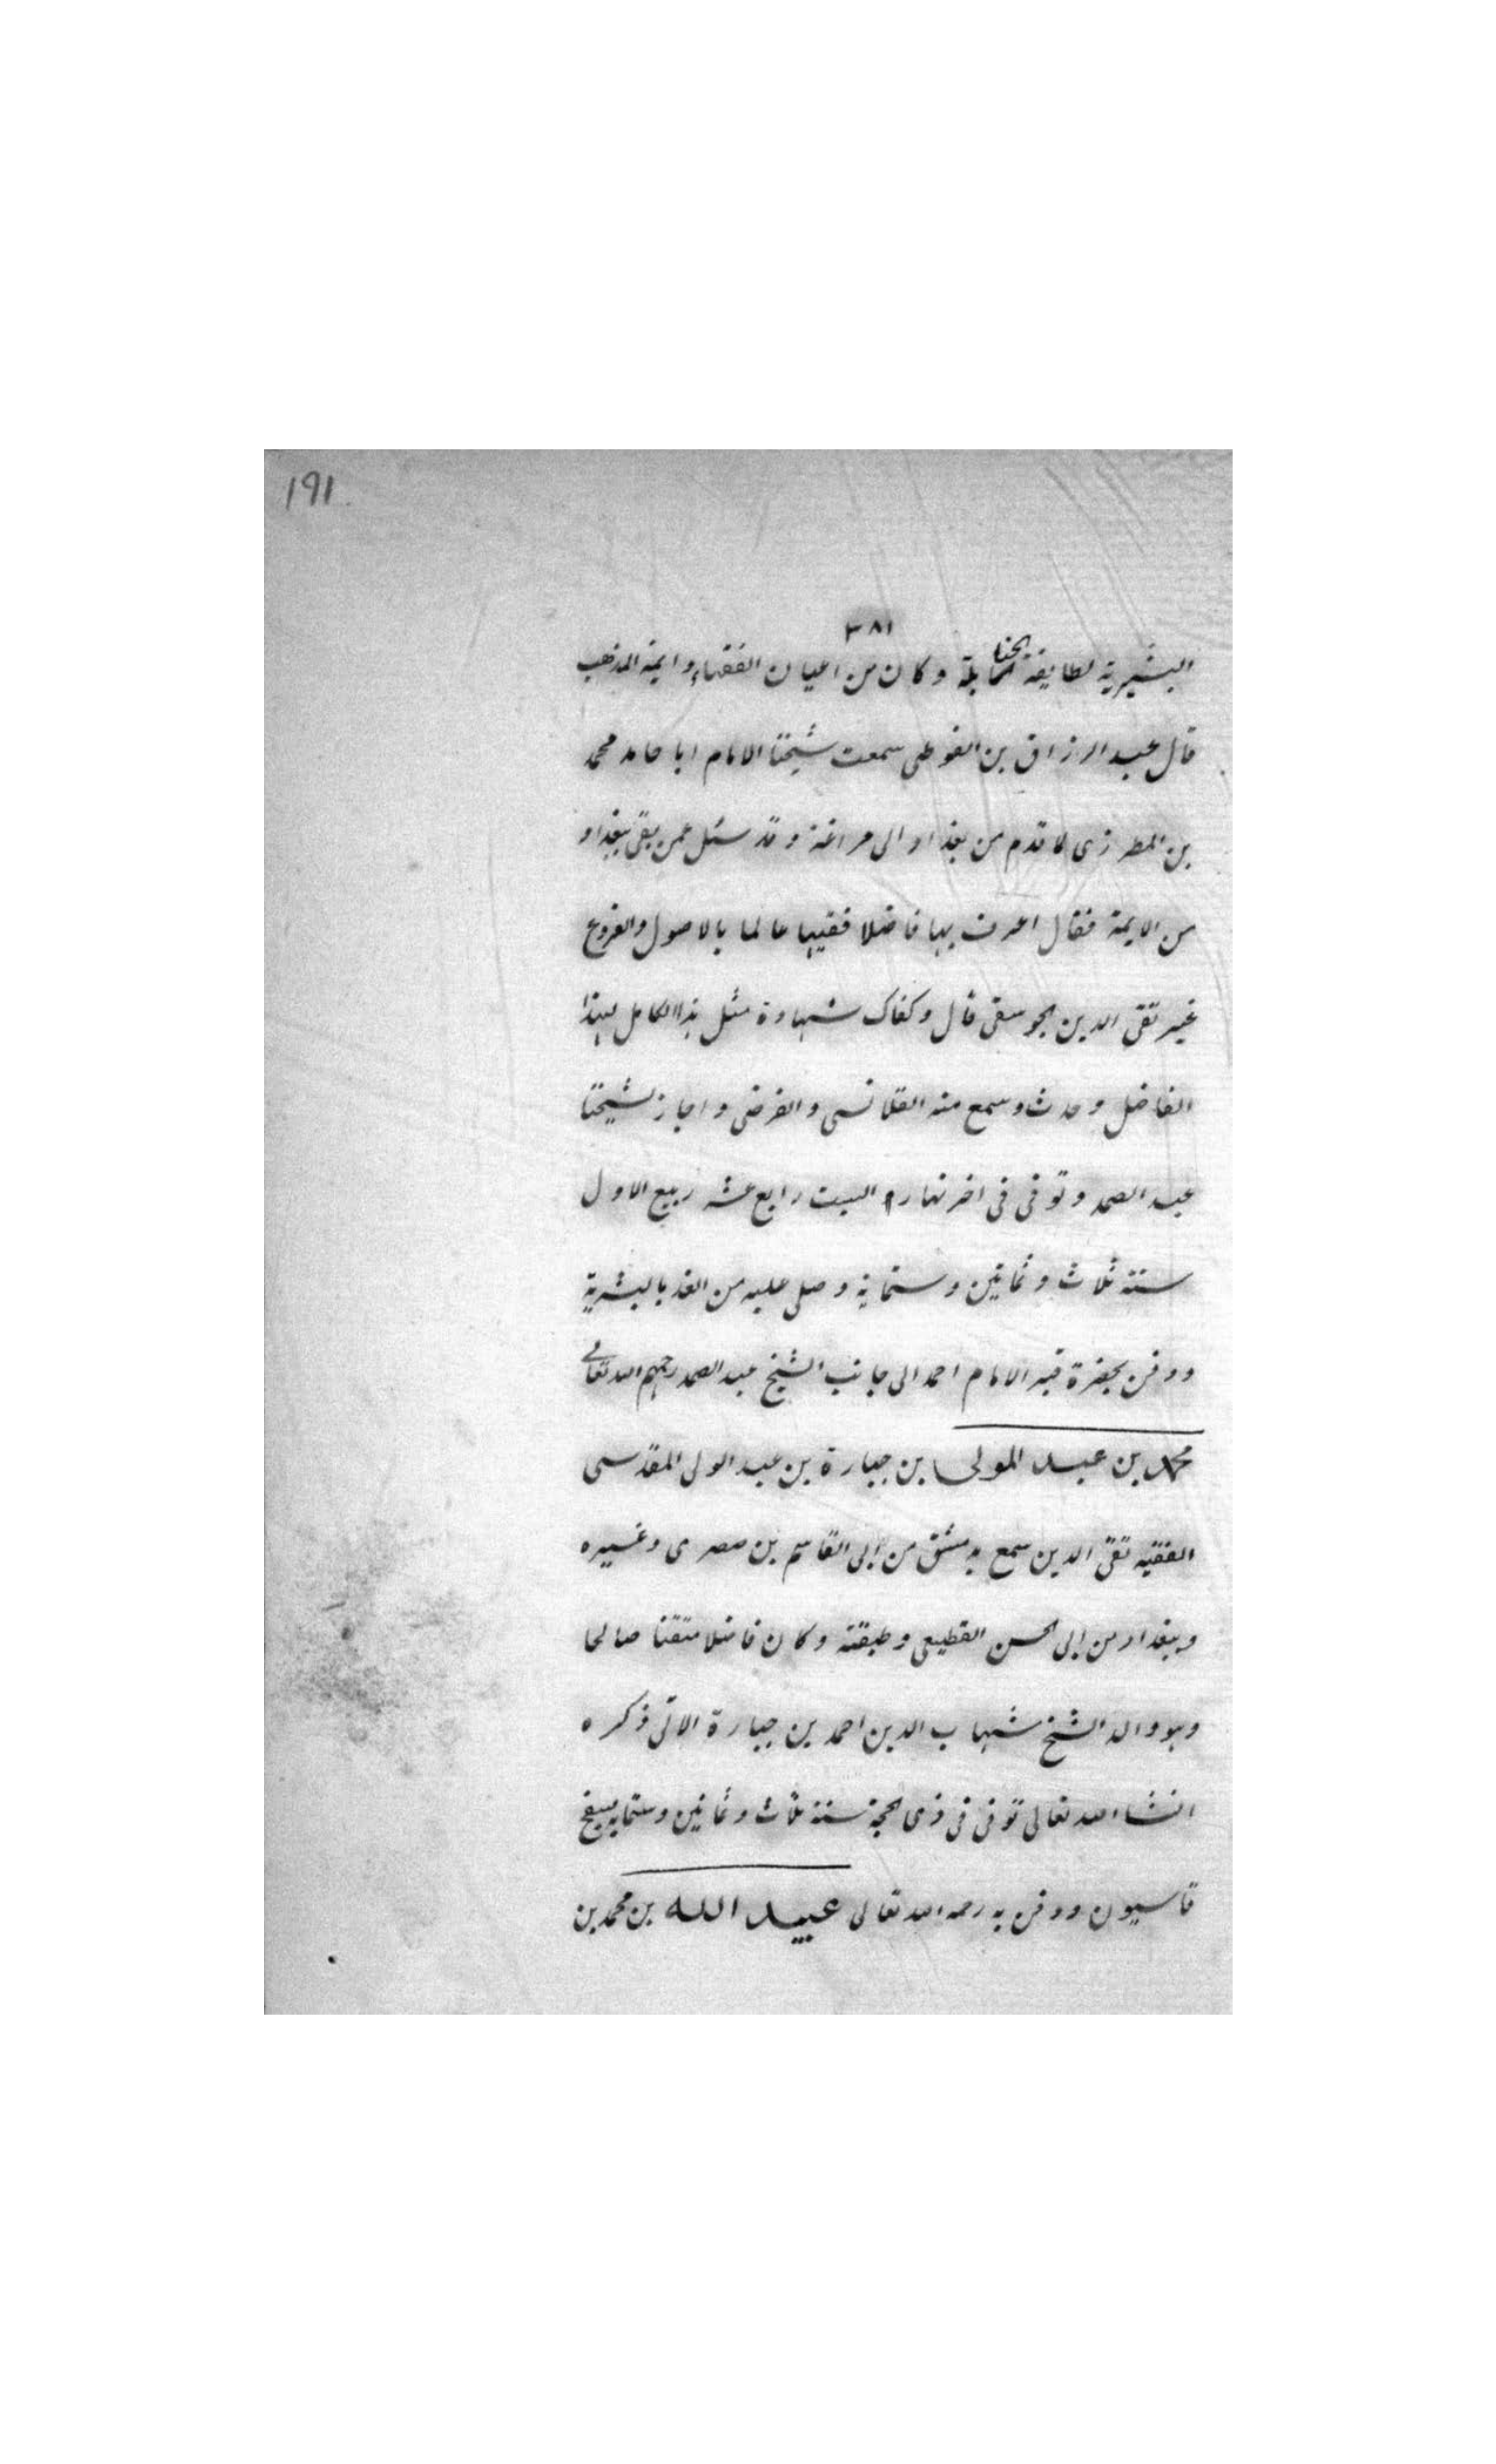 191
٣٨١
البشيرية لطايفة الحنابلة وكان من اعيان الفقهاء وايمة المذهب
قال عبد الرزاق بن الفوطى سمعت شيخنا الامام ابا حامد محمد
بن المطرزى لما قدم من بغداد الى مراغة وقد سئل عمن بقى ببغداد
من الايمة فقال اعرف بها فاضلا فقيها عالما بالاصول والفروع
غير تقى الدين الجوسقى قال وكفاك شهادة مثل هذا الكامل لهذا
الفاضل وحدث وسمع منه القلانسى والفرضى واجاز لشيخنا
عبد الصمد وتوفى فى اخر نهار السبت رابع عشر ربيع الاول
سنة ثلاث وثمانين وستماية وصلى عليه من الغد بالبشرية
ودفن بحضرة قبر الامام احمد الى جانب الشيخ عبد الصمد رحمهم الله تعالى
محمد بن عبد المولى بن جبارة بن عبد الولى المقدسى
الفقيه تقى الدين سمع بدمشق من ابى القاسم بن صصرى وغيره
وببغداد من ابى الحسن القطيعى وطبقته وكان فاضلا متقنا صالحا
وهو والد الشيخ شهاب الدين احمد بن جبارة الاتى ذكره
انشاء الله تعالى توفى فى ذى الحجة سنة ثلاث وثمانين وستماية بسفح
قاسيون ودفن به رحمه الله تعالى عبيد الله بن محمد بن